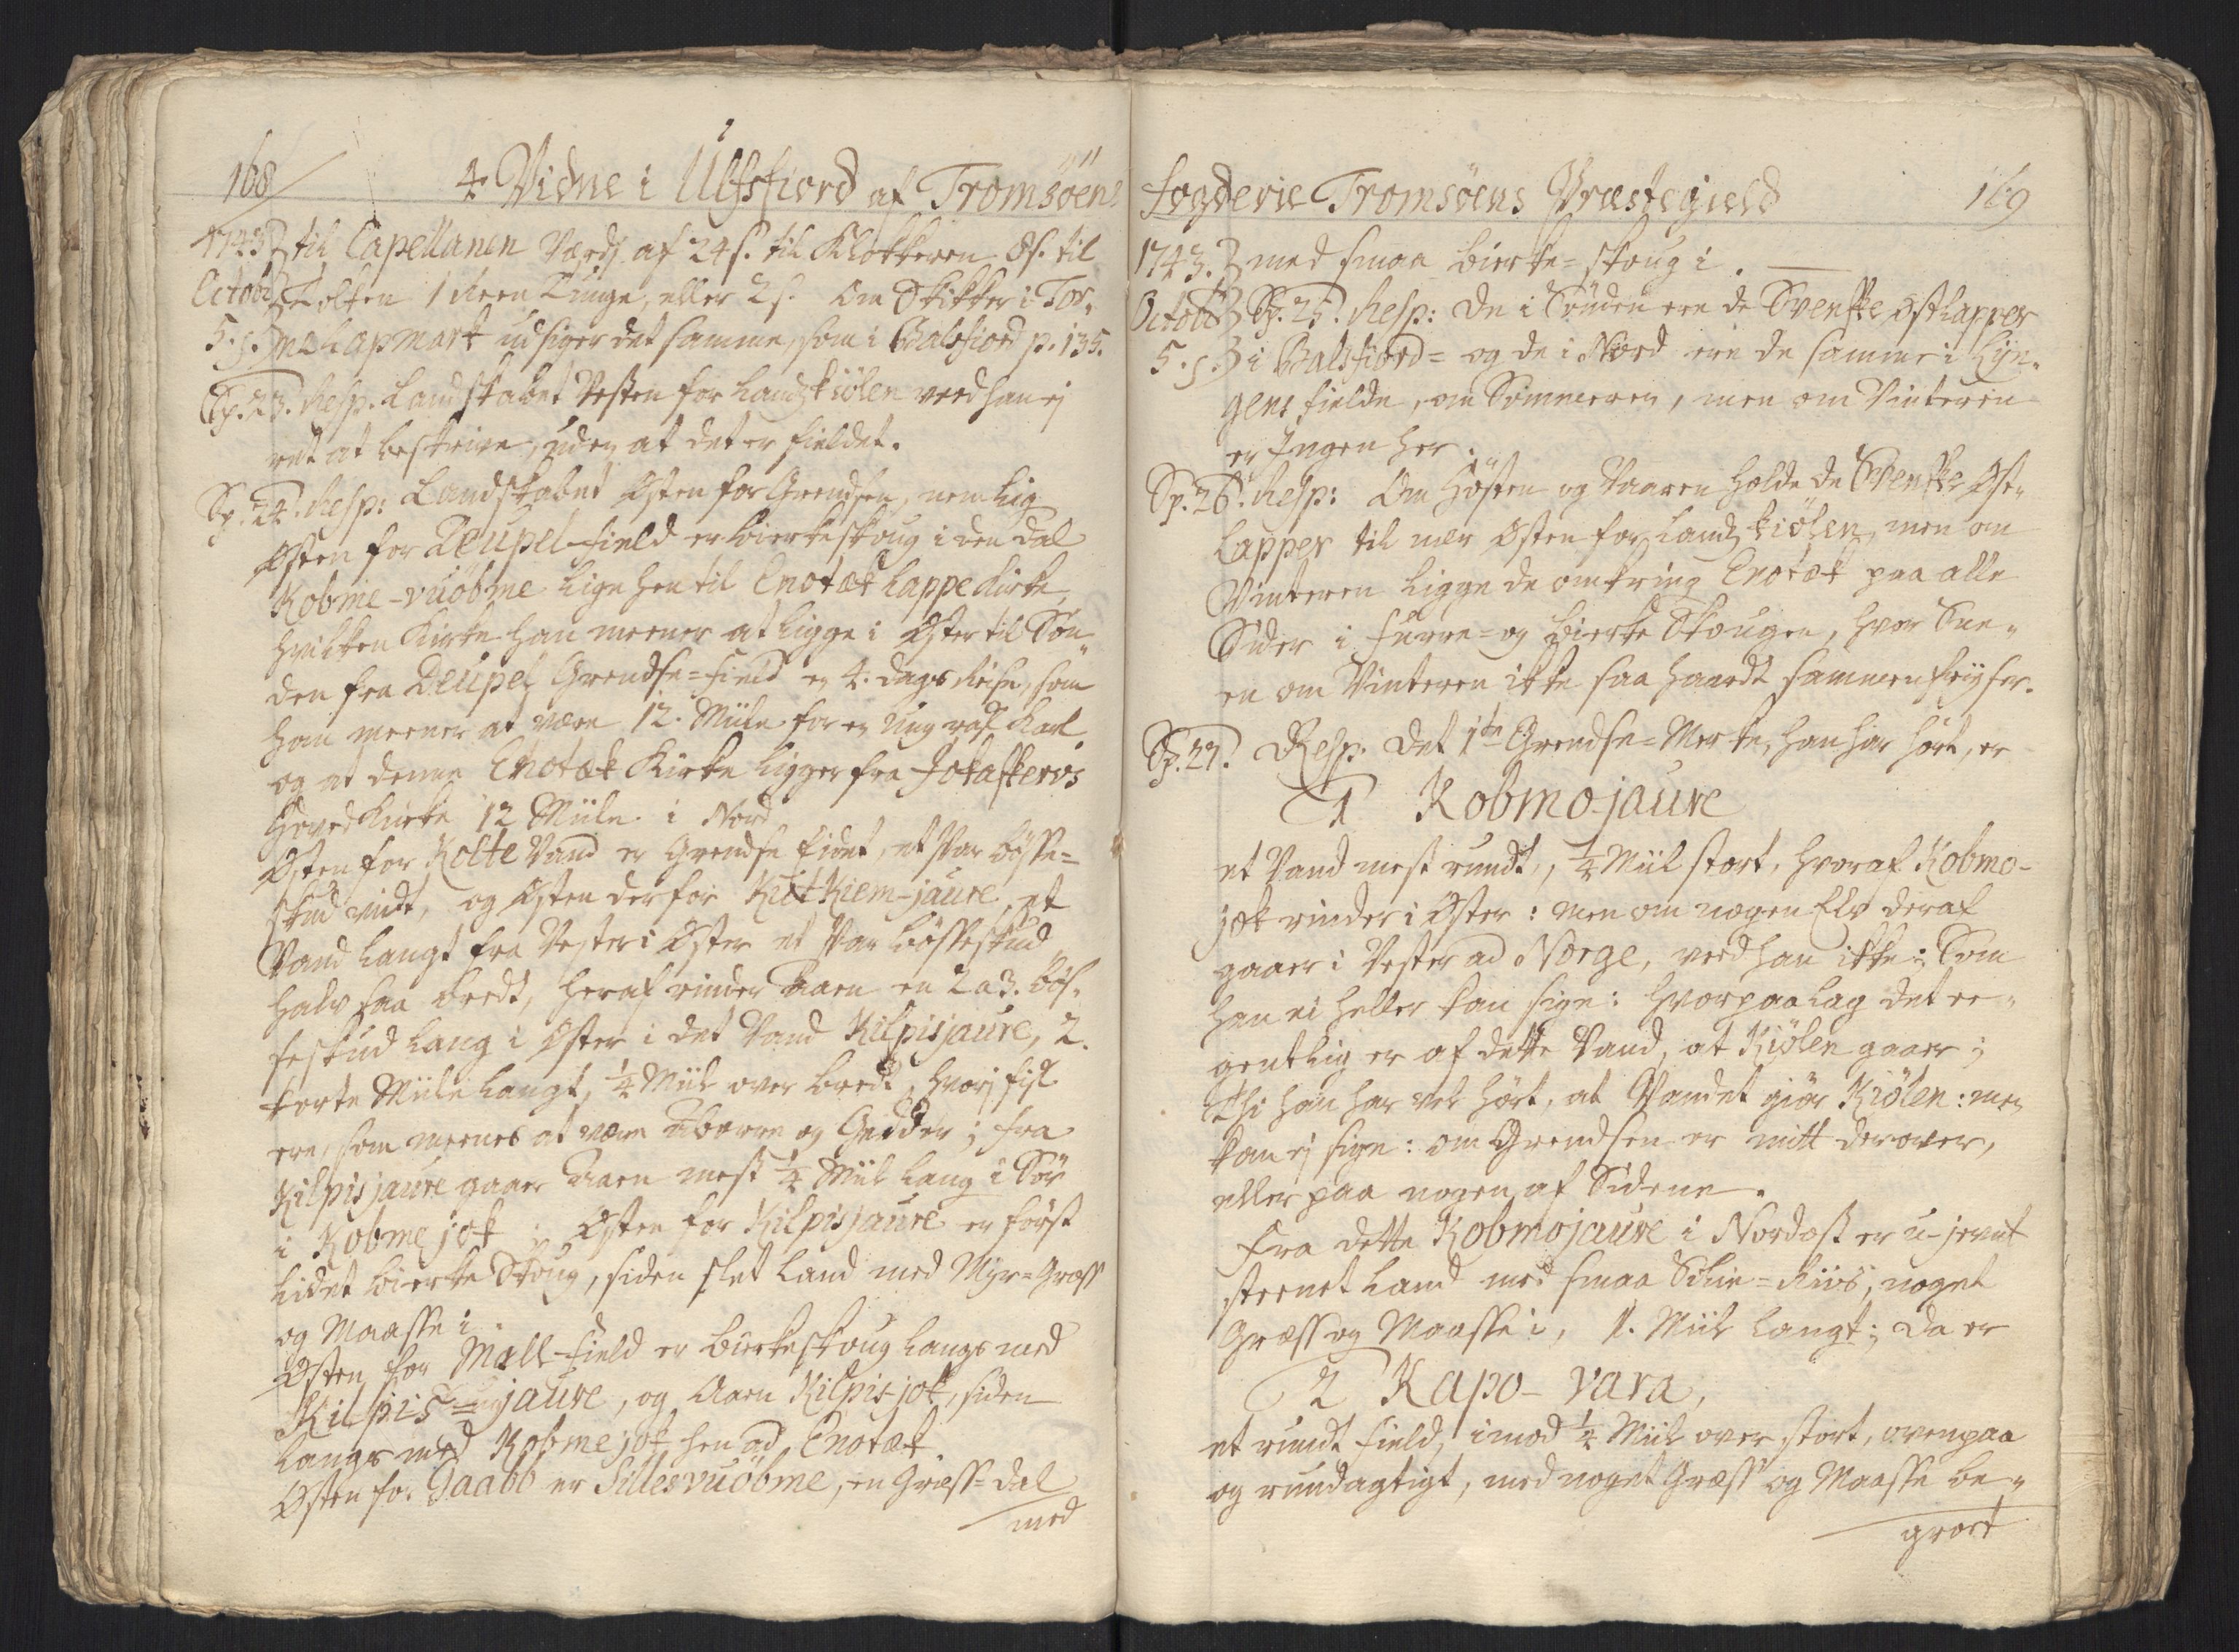 168
4 Vidne i Ulfsfiord af Tromsöens
1743 til Capellanen Værdj af 24 s. til Klokkeren 8 s. til
Octobr Tolken 1 Reen Tunge, eller 2 s. Om Skikker i Tor-
5. s. ne Lapmark udsiger det samme, som i Balsfiord p. 135.
Sp. 23. Resp. Landskabet Vesten for Landzkiölen veed han ej
ret at beskrive, uden at det er fieldet.
Sp. 24. Resp: Landskabet Østen for Grendsen, nemlig
Østen for Deupel-field er bierkeskoug i den dal
Kobme-vuöbme lige hen til Enotæk Lappe Kirke,
hvilken Kirke han meener at ligge i Øster til Søn-
den fra Deupel Grendse-field en 4. dags Reise, som
han meener at være 12. Miile for en ung rask Karl
og at denne Enotæk Kirke ligger fra Jokaskervs
Hoved Kirke 12 Miile i Nord
Østen for Kolte Vand er Grendse Eidet, et Par bösse-
skud vidt, og Østen derfor Kikt Kiem-jaure et
Vand langt fra Vester i Øster et Par bösseskud
halv saa bredt, heraf rinder Aaen en 2 a 3. bös-
seskud lang i Øster i det Vand Kilpisjaure, 2.
korte Miile langt, ¼ Miil over bredt, hvorj fisk
ere, som meenes at være Aborre og Gedder; fra
Kilpisjaure gaaer Aaen mest ¼ Miil lang i Sör
i Kobmejok; Østen for Kilpisjaure er först
lidet bierke Skoug, siden slet Land med Myr-Græss
og Maasse i.
Østen for Mall-field er bierkeskoug langs med
Kilpis-jaure, og Aaen Kilpis-jok, siden
langs med Kobmejok hen ad Enotæk.
Østen for Daabb er Sillesvuöbme, en Græss-dal
med
fogderie Tromsöens Præstegield
169
1743. med smaa bierke-skoug i.
Octobr Sp. 25. Resp: De i Sönden ere de Svenske Østlapper
5. s. i Balsfiord- og de i Nord ere de samme i Lyn-
gens fielde, om Sommeren, men om Vinteren
er Ingen her.
Sp. 26. Resp: Om Hösten og Vaaren holde de Svenske Øst-
Lapper til nær Østen for Landzkiölen, men om
Vinteren ligge de omkring Enotæk paa alle
Sider i furre- og bierke Skougen, hvor Snee-
en om Vinteren ikke saa haardt sammenfryser.
Sp. 27. Resp. Det 1te Grendse-Merke, han har hört, er
1 Kobmo-jaure
et Vand mest rundt, ¼ Miil stort, hvoraf Kobmo-
jok rinder i Øster: men om nogen Elv deraf
gaaer i Vester ad Norge, veed han ikke; Som
han ei heller kan sige: hvorpaa lag det ee-
gentlig er af dette Vand, at Kiölen gaaer;
Thi han har vel hört, at Vandet giör Kiölen: men
kan ej sige: om Grendsen er mitt derover,
eller paa nogen af Siderne.
Fra dette Kobmojaure i Nordost er u-jevnt
steenet Land med smaa Selie-Riis, noget
Græss og Maasse i, 1. Miil langt; da er
2 Kapo-vara,
et rundt field, imod ¼ Miil over stort, ovenpaa
og rundagtigt, med noget Græss og Maasse be-
groet